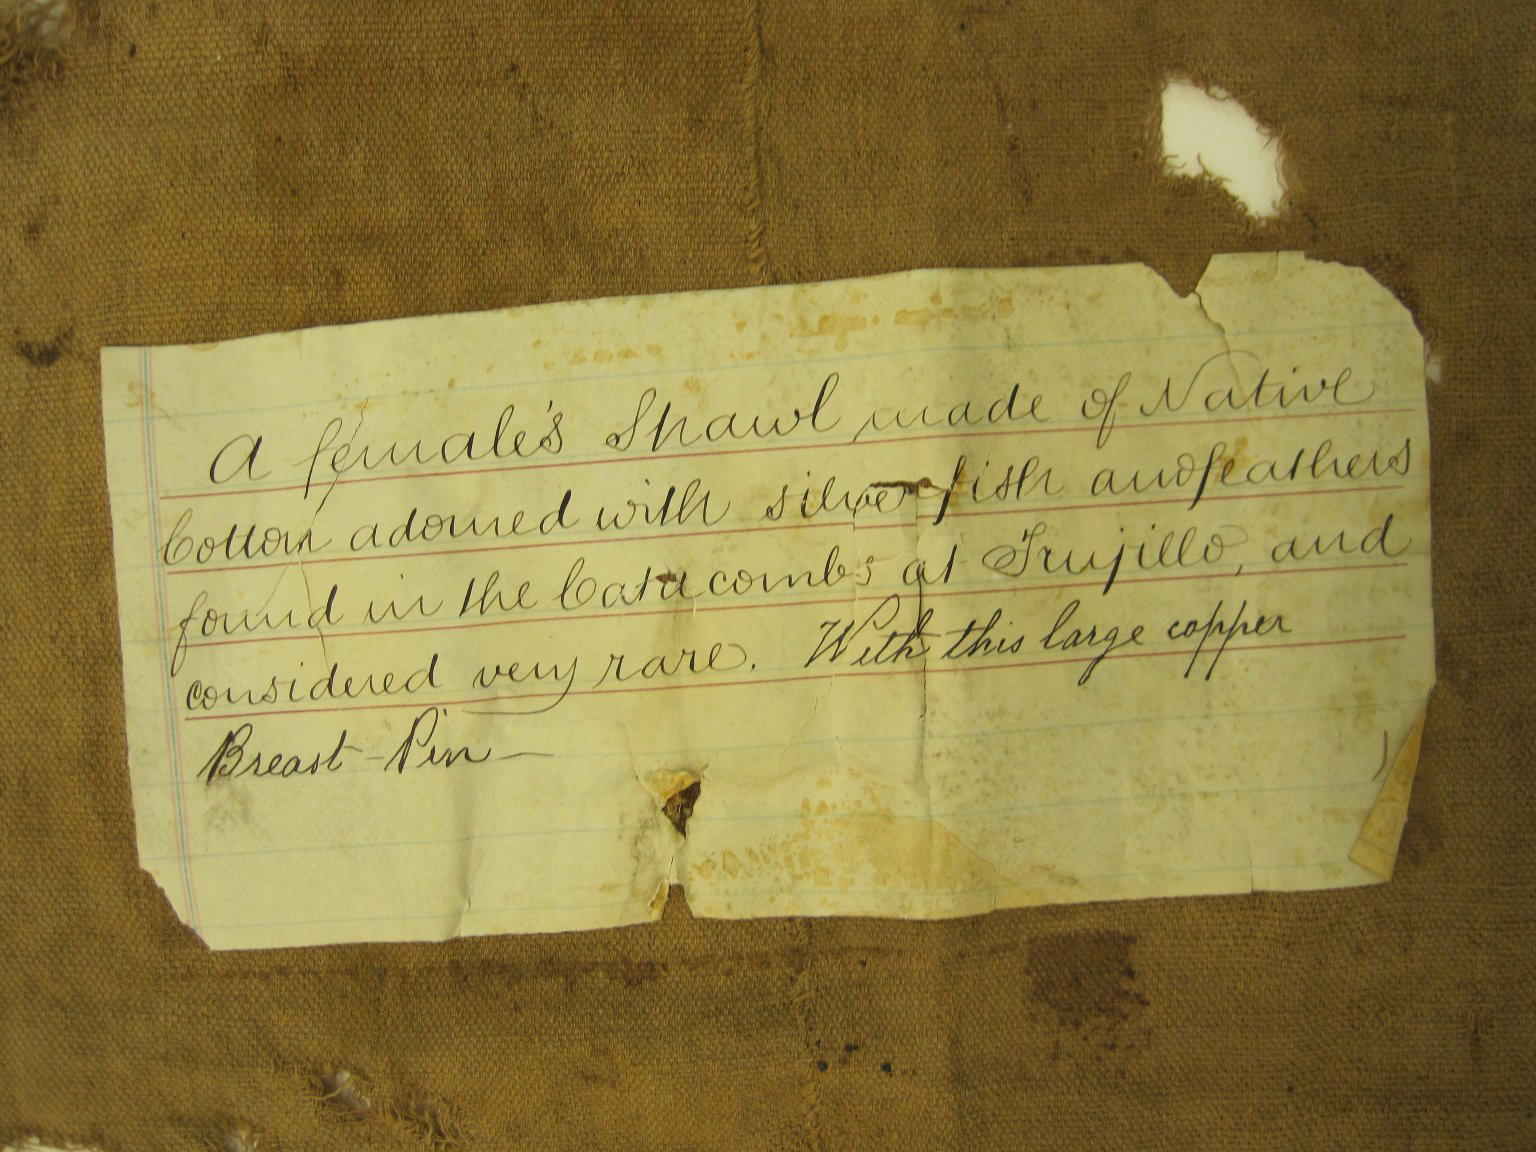 A female's Shawl made of Native
Cotton adorned with silver fish and feathers
found in the Catacombs at Trujillo, and
considered very rare. With this large copper
Breast-Pin-